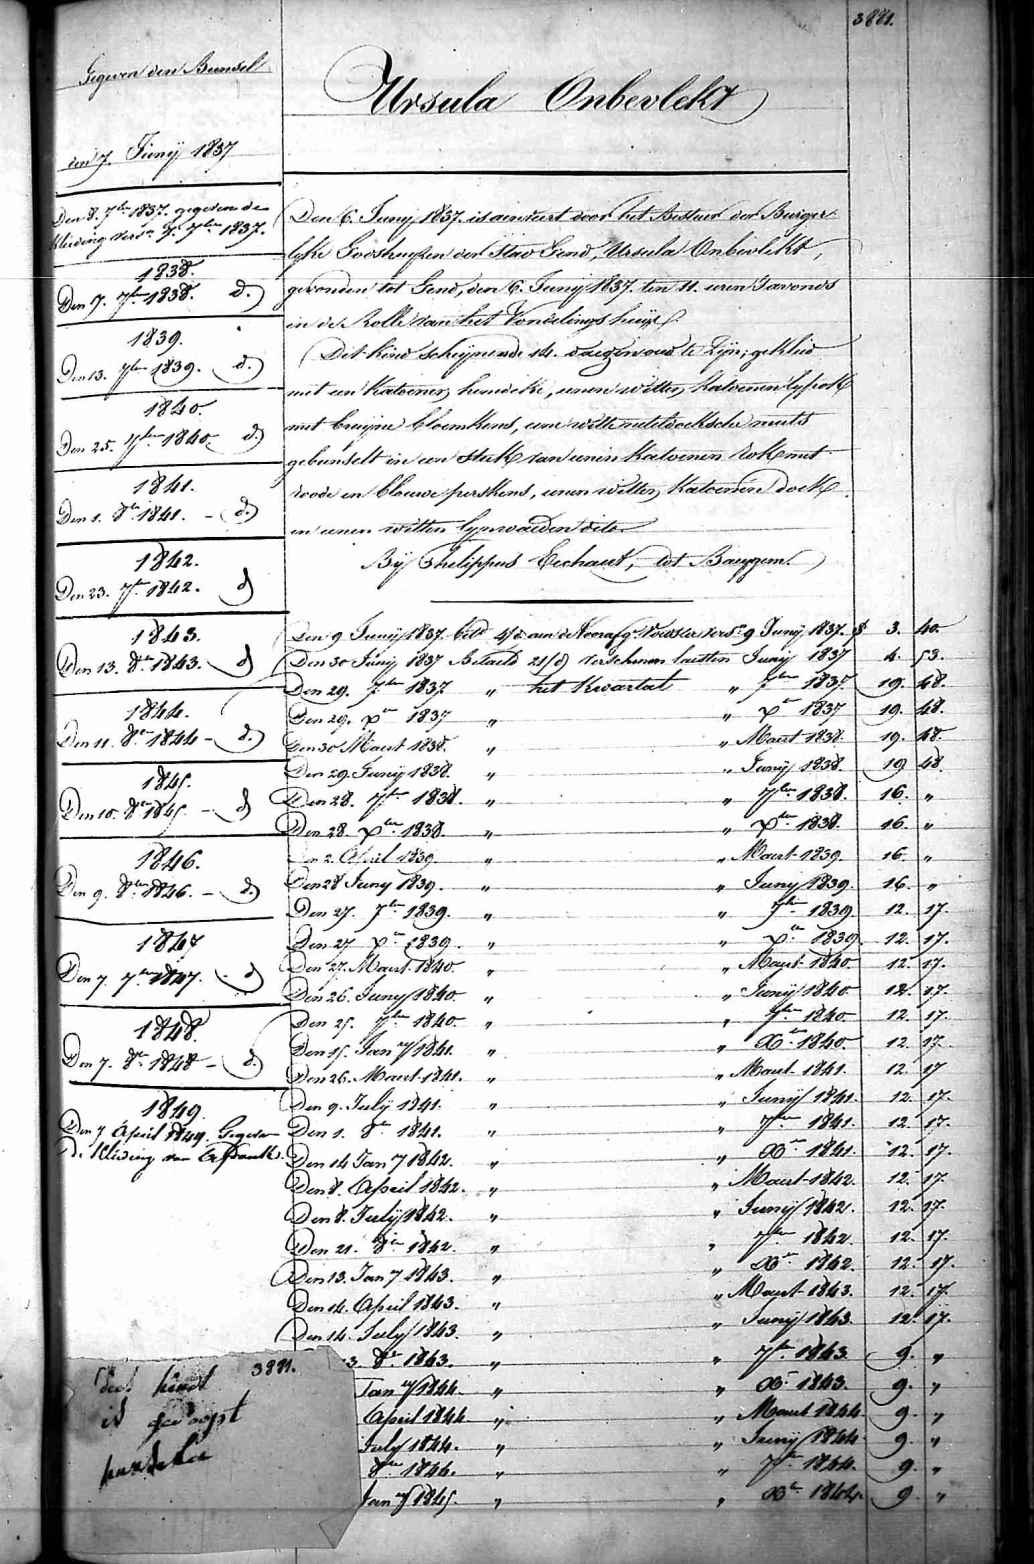 3881.
Gegeven den Bunsel
Ursula Onbevlekt
den 7. Junij 1837
Den 8. 7ber 1837. gegeven de
kleeding verv. 7ber 1837.
1838.
Den 7. 7ber 1838. d.)
1839.
Den 13. 7ber 1839. d.)
1840.
Den 25. 7ber 1840. d.)
1841.
Den 1. 8br 1841. - d.)
1842.
Den 23. 7br 1842. d)
1843.
Den 13. 8br 1843. d)
1844.
Den 11. 8br 1844 - d.)
1845.
Den 10. 8br 1845 - d)
1846.
Den 9. 8ber 1846. - d.)
1847
Den 7. 7ber 1847. - d)
1848.
Den 7. 8br 1848 - d.)
1849.
Den 7 April 1849. Gegeven
de kleeding van
Den 6. Junij 1837. is aenveert door het Bestuer der Burger-
lyke Godshuyzen der Stad Gend, Ursula Onbevlekt,
gevonden tot Gend, den 6. Junij 1837. ten 11. uren s'avonds
in de Rolle van het Vondelings huijs.
Dit kind scheijnende 14. daegen oud te zijn; gekleed
met een katoenen hemdeke, eenen witten katoenen lyfrok
met bruijne bloemkens, eene witte neteldoeksche muts
gebunselt in een stuk van eenen katoenen rok met
roode en blauwe perskens, eenen witten katoenen doek
en eenen witten lynwaeden dito
Bij Philippus Eechaut, tot Bauygem.
Den 9 Junij 1837. 9 Junij 1837. f 3. 40.
Den 30 Junij 1837 Betaeld 21/d verschenen laesten Junij 1837 4. 53.
Den 29. 7ber 1837 „ het kwartael „ 7ber 1837. 19. 48.
Den 29. Xer 1837 „ „ Xer 1837 19. 48.
Den 30 Maert 1838. „ „ Maert 1838. 19. 48.
Den 29. Junij 1838. „ „ Junij 1838. 19 48.
Den 28. 7ber 1838. „ „ 7ber 1838. 16. „
Den 28. Xber 1838 „ „ Xber 1838. 16. „
Den 2. April 1839. „ „ Maert 1839. 16. „
Den 28 Juny 1839. „ „ Junij 1839. 16. „
Den 27. 7ber 1839. „ „ 7ber 1839 12. 17.
Den 27 Xer 1839. „ „ Xer 1839. 12. 17.
Den 27. Maert 1840. „ „ Maert 1840 12. 17.
Den 26. Juny 1840. „ „ Junij 1840 12. 17.
Den 25. 7ber 1840. „ „ 7ber 1840. 12. 17.
Den 15. Jany 1841. „ „ Xber 1840. 12. 17.
Den 26. Maert 1841. „ „ Maert 1841. 12. 17
Den 9. July 1841. „ „ Junij 1841. 12. 17.
Den 1. 8br 1841. „ „ 7ber 1841. 12. 17.
Den 14 Jany 1842. „ „ Xer 1841. 12. 17.
Den 8. April 1842. „ „ Maert 1842. 12. 17.
Den 8. Julij 1842. „ „ Junij 1842. 12. 17.
Den 21. 8br 1842. „ „ 7ber 1842. 12. 17.
Den 13. Jany 1843. „ „ Xer 1842. 12. 17.
Den 14. April 1843. „ „ Maert 1843. 12. 17.
Den 14. July 1843. „ „ Junij 1843. 12. 17.
3. 8br 1843. „ „ 7br 1843. 9. „
Jany 1844. „ „ Xr 1843. 9. „
April 1844 „ „ Maert 1844 9. „
July 1844. „ „ Junij 1844. 9. „
8ber 1844. „ „ 7br 1844. 9. „
Jany 1845. „ „ Xer 1844. 9. „
3881.
dit kindt
is gedoopt